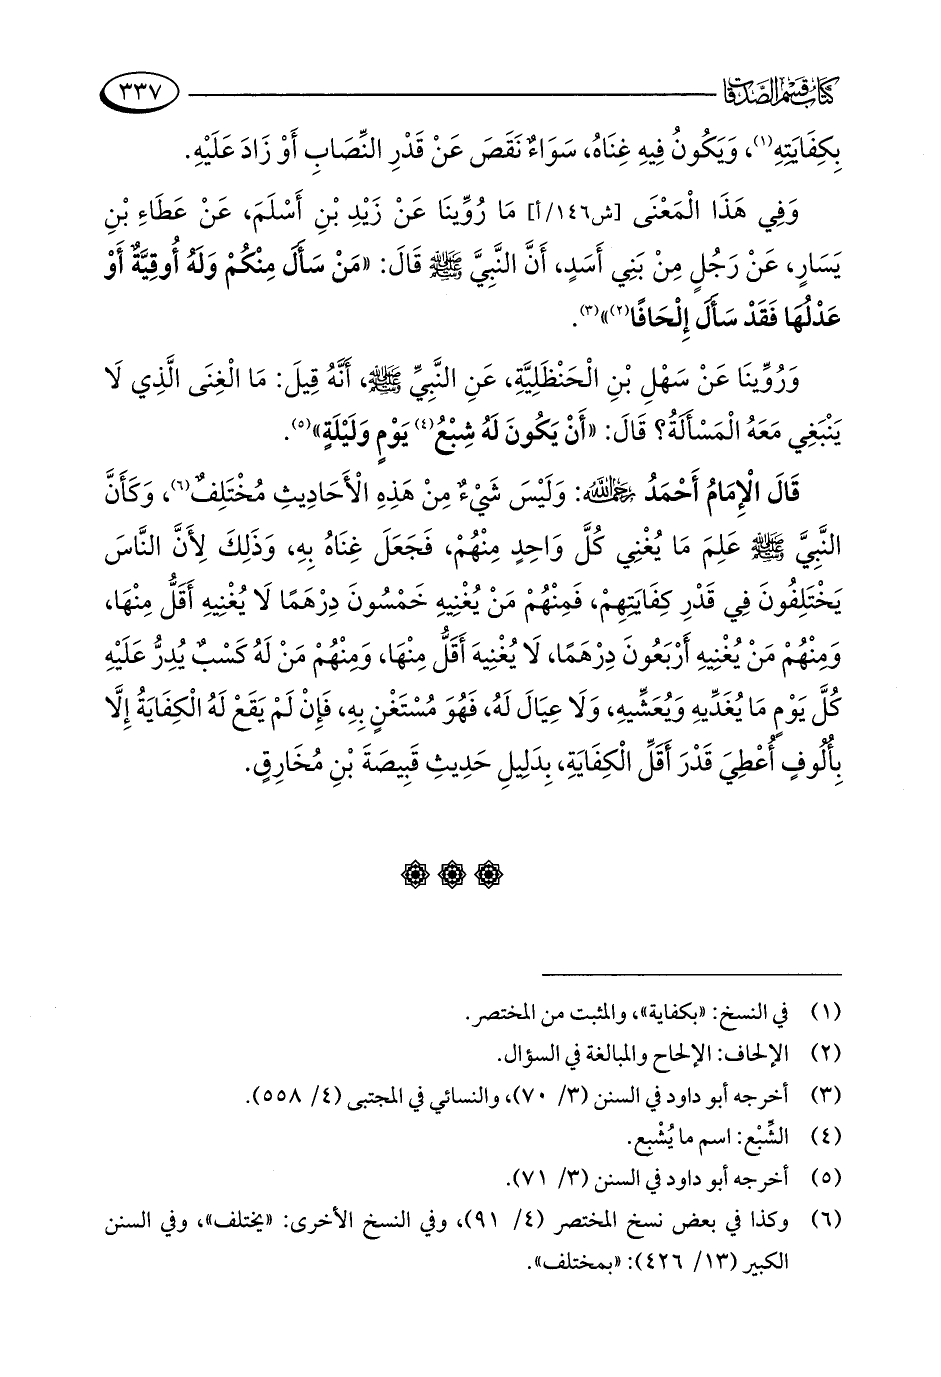 كتاب قسم الصدقات ٣٣٧
بِكِفَايَتِهِ(١)، وَيَكُونُ فِيهِ غِنَاهُ، سَوَاءٌ نَقَصَ عَنْ قَدْرِ النِّصَابِ أَوْ زَادَ عَلَيْهِ.
وَفِي هَذَا الْمَعْنَى [ش١٤٦/أ] مَا رُوِّينَا عَنْ زَيْدِ بْنِ أَسْلَمَ، عَنْ عَطَاءِ بْنِ
يَسَارٍ، عَنْ رَجُلٍ مِنْ بَنِي أَسَدٍ، أَنَّ النَّبِيَّ ﷺ قَالَ: «مَنْ سَأَلَ مِنْكُمْ وَلَهُ أُوقِيَّةٌ أَوْ
عَدْلُهَا فَقَدْ سَأَلَ إِلْحَافًا(٢)»(٣).
وَرُوِّينَا عَنْ سَهْلِ بْنِ الْحَنْظَلِيَّةِ، عَنِ النَّبِيِّ ﷺ، أَنَّهُ قِيلَ: مَا الْغِنَى الَّذِي لَا
يَنْبَغِي مَعَهُ الْمَسْأَلَةُ؟ قَالَ: «أَنْ يَكُونَ لَهُ شِبْعُ(٤) يَوْمٍ وَلَيْلَةٍ»(٥).
قَالَ الْإِمَامُ أَحْمَدُ رَحِمَهُ اللهُ: وَلَيْسَ شَيْءٌ مِنْ هَذِهِ الْأَحَادِيثِ مُخْتَلِفٌ(٦)، وَكَأَنَّ
النَّبِيَّ ﷺ عَلِمَ مَا يُغْنِي كُلَّ وَاحِدٍ مِنْهُمْ، فَجَعَلَ غِنَاهُ بِهِ، وَذَلِكَ لِأَنَّ النَّاسَ
يَخْتَلِفُونَ فِي قَدْرِ كِفَايَتِهِمْ، فَمِنْهُمْ مَنْ يُغْنِيهِ خَمْسُونَ دِرْهَمًا لَا يُغْنِيهِ أَقَلُّ مِنْهَا،
وَمِنْهُمْ مَنْ يُغْنِيهِ أَرْبَعُونَ دِرْهَمًا، لَا يُغْنِيهَ أَقَلُّ مِنْهَا، وَمِنْهُمْ مَنْ لَهُ كَسْبٌ يُدِرُّ عَلَيْهِ
كُلَّ يَوْمٍ مَا يُغَدِّيهِ وَيُعَشِّيهِ، وَلَا عِيَالَ لَهُ، فَهُوَ مُسْتَغْنٍ بِهِ، فَإِنْ لَمْ يَقَعْ لَهُ الْكِفَايَةُ إِلَّا
بِأُلُوفٍ أُعْطِيَ قَدْرَ أَقَلِّ الْكِفَايَةِ، بِدَلِيلِ حَدِيثِ قَبِيصَةَ بْنِ مُخَارِقٍ.
(١) في النسخ: «بكفاية»، والمثبت من المختصر.
(٢) الإلحاف: الإلحاح والمبالغة في السؤال.
(٣) أخرجه أبو داود في السنن (٣/ ٧٠)، والنسائي في المجتبى (٤/ ٥٥٨).
(٤) الشِّبْع: اسم ما يُشْبِع.
(٥) أخرجه أبو داود في السنن (٣/ ٧١).
(٦) وكذا في بعض نسخ المختصر (٤/ ٩١)، وفي النسخ الأخرى: «يختلف»، وفي السنن
الكبير (١٣/ ٤٢٦): «بمختلف».